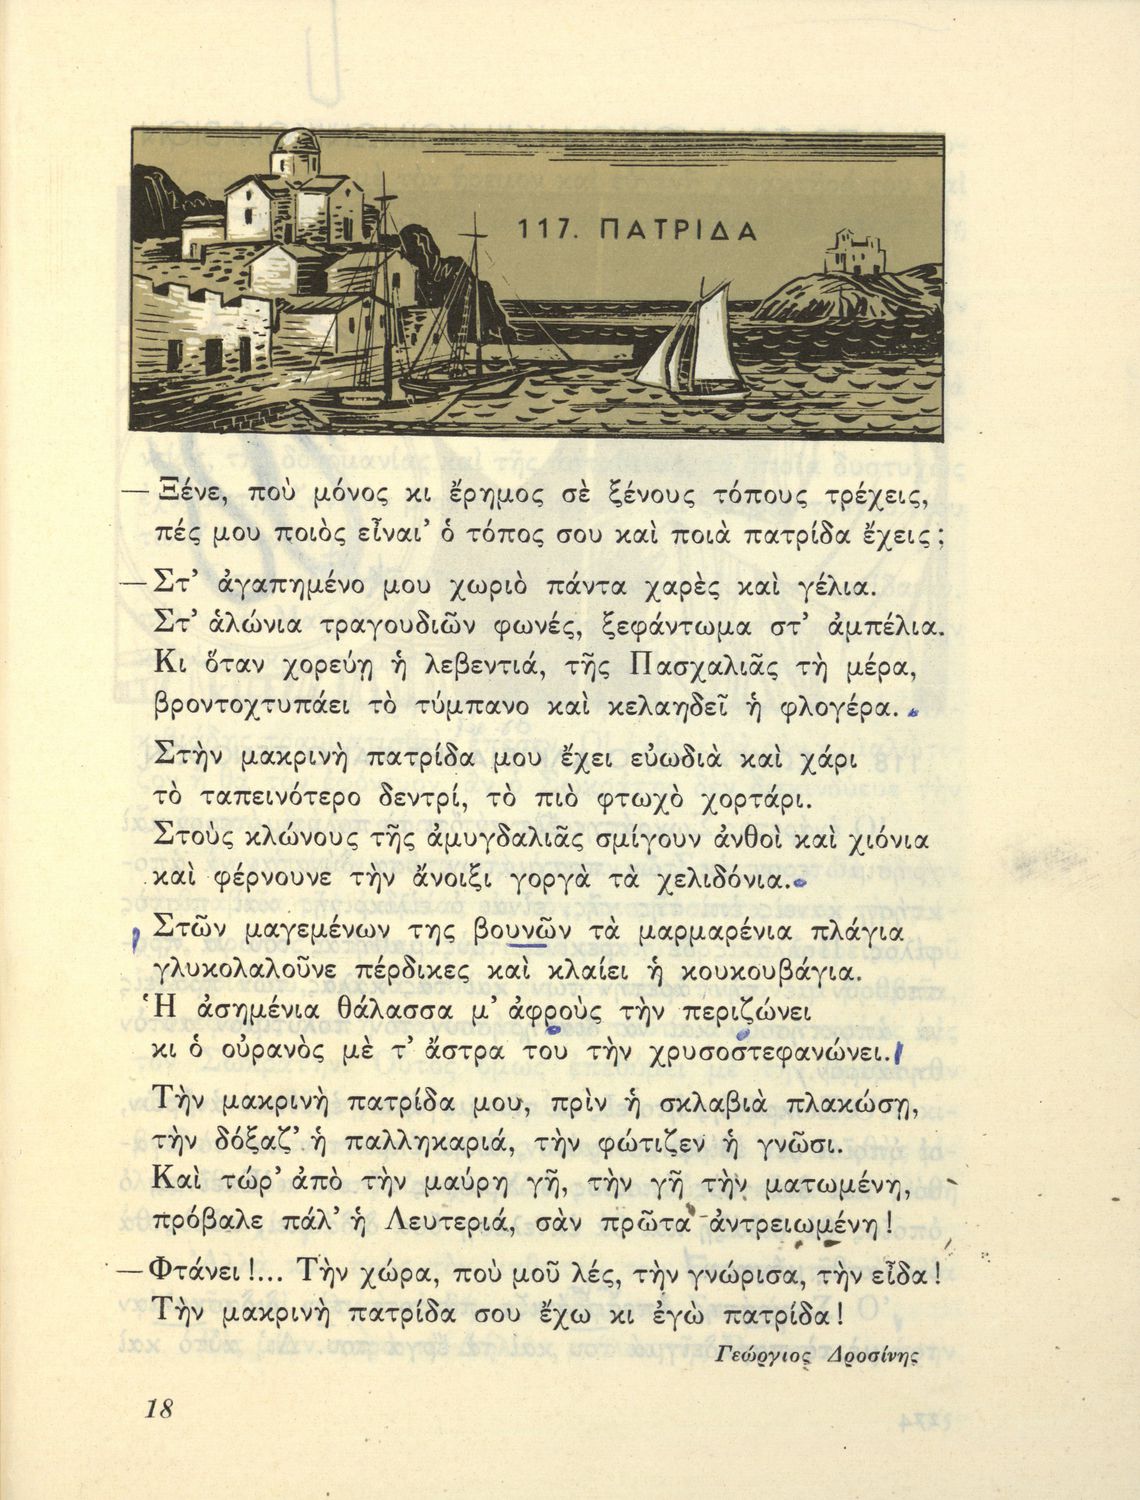 117. ΠΑΤΡΙΔΑ
— Ξένε, ποὺ μόνος κι ἔρημος σὲ ξένους τόπους τρέχεις,
πές μου ποιὸς εἶναι' ὁ τόπος σου καὶ ποιὰ πατρίδα ἔχεις;
— Στ' ἀγαπημένο μου χωριὸ πάντα χαρὲς καὶ γέλια.
Στ' ἁλώνια τραγουδιῶν φωνές, ξεφάντωμα στ' ἀμπέλια.
Κι ὅταν χορεύῃ ἡ λεβεντιά, τῆς Πασχαλιᾶς τὴ μέρα,
βροντοχτυπάει τὸ τύμπανο καὶ κελαηδεῖ ἡ φλογέρα.
Στὴν μακρινὴ πατρίδα μου ἔχει εὐωδιὰ καὶ χάρι
τὸ ταπεινότερο δεντρί, τὸ πιὸ φτωχὸ χορτάρι.
Στοὺς κλώνους τῆς ἀμυγδαλιᾶς σμίγουν ἀνθοὶ καὶ χιόνια
καὶ φέρνουνε τὴν ἄνοιξι γοργὰ τὰ χελιδόνια.
Στῶν μαγεμένων της βουνῶν τὰ μαρμαρένια πλάγια
γλυκολαλοῦνε πέρδικες καὶ κλαίει ἡ κουκουβάγια.
Ἡ ἀσημένια θάλασσα μ' ἀφροὺς τὴν περιζώνει
κι ὁ οὐρανὸς μὲ τ' ἄστρα του τὴν χρυσοστεφανώνει.
Τὴν μακρινὴ πατρίδα μου, πρὶν ἡ σκλαβιὰ πλακώσῃ,
τὴν δόξαζ' ἡ παλληκαριά, τὴν φώτιζεν ἡ γνῶσι.
Καὶ τώρ' ἀπὸ τὴν μαύρη γῆ, τὴν γῆ τὴν ματωμένη,
πρόβαλε πάλ' ἡ Λευτεριά, σὰν πρῶτα ἀντρειωμένη!
— Φτάνει!... Τὴν χώρα, ποὺ μοῦ λές, τὴν γνώρισα, τὴν εἶδα!
Τὴν μακρινὴ πατρίδα σου ἔχω κι ἐγὼ πατρίδα!
Γεώργιος Δροσίνης
18